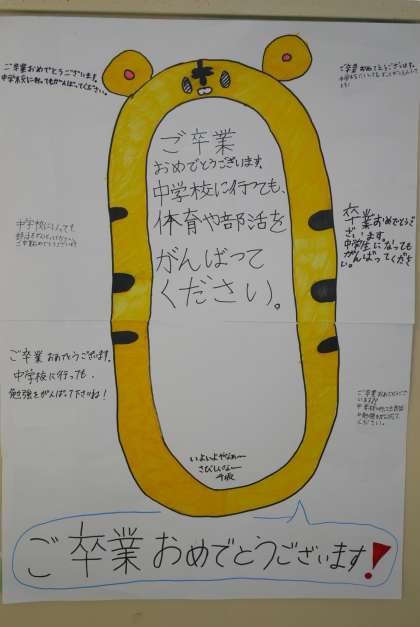 ご卒業おめでとうございます。
中学校に行ってもがんばってください。
ご卒業おめでとうございます。
ご卒業
おめでとうございます。
中学校に行っても、
体育や部活を
がんばって
ください。
中学校にいっても
卒業おめでとうご
ざいます。
中学生になっても
がんばってくださ
い。
ご卒業おめでとうございます。
中学校に行っても、
勉強をがんばって下さいね！
ご卒業おめでとうござ
ください。
いよいよやなぁー
さびしいなー
ご卒業おめでとうございます！